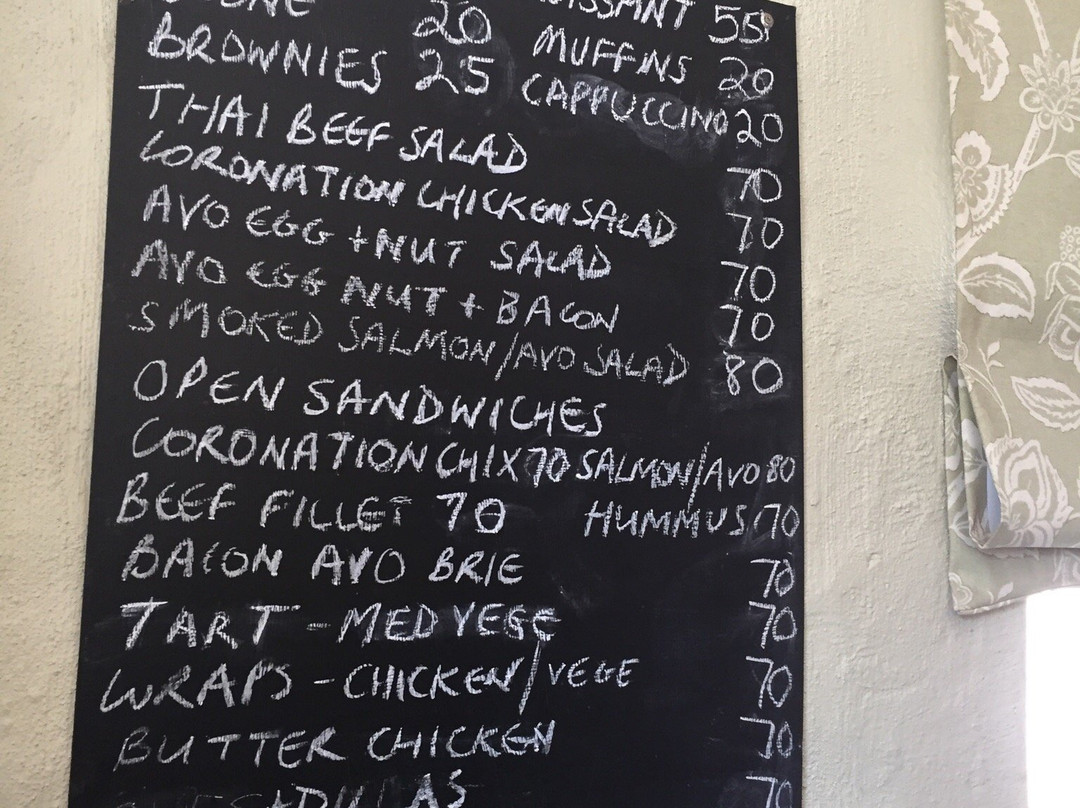 20 55
BROWNIES 25 MUFFINS 20
CAPPUCCINO 20
THAI BEEF SALAD 70
CORONATION CHICKEN SALAD 70
AVO EGG + NUT SALAD 70
AVO EGG NUT + BACON 70
SMOKED SALMON/AVO SALAD 80
OPEN SANDWICHES
CORONATION CHIX 70 SALMON/AVO 80
BEEF FILLET 70 HUMMUS 70
BACON AVO BRIE 70
TART - MED VEGE 70
WRAPS - CHICKEN/VEGE 70
BUTTER CHICKEN 70
70